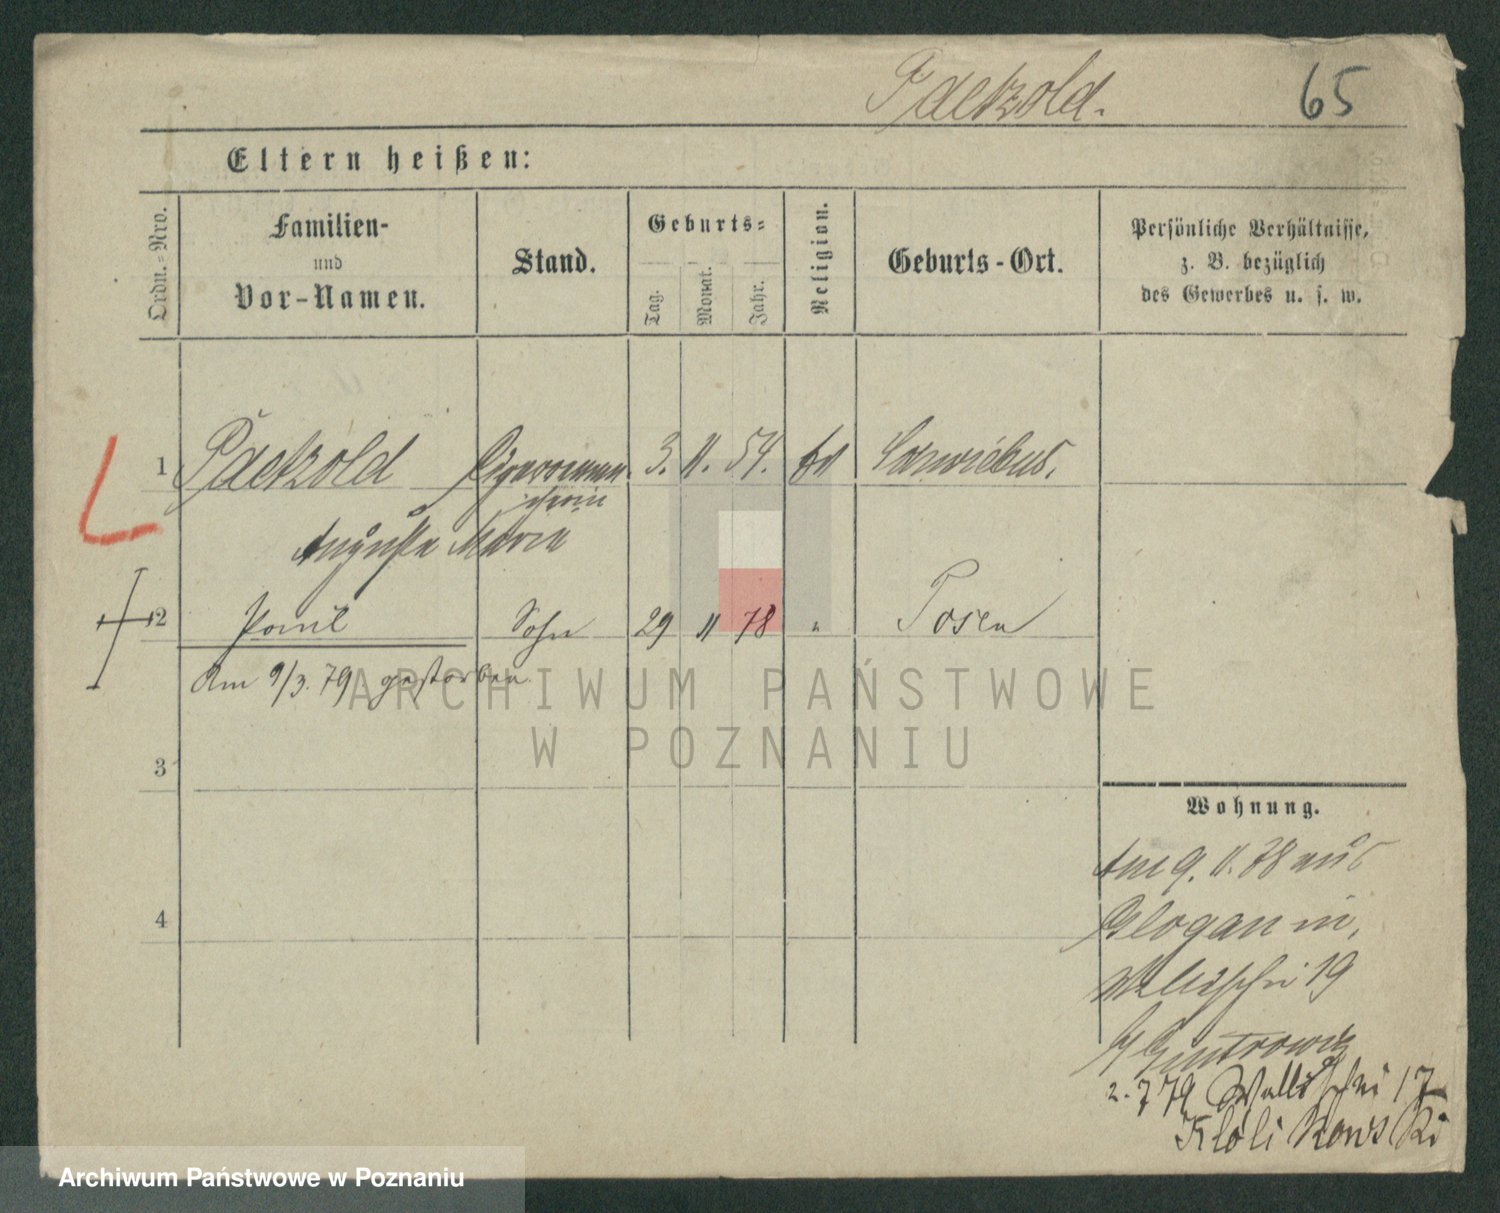 Paetzold.
65
Eltern heißen:
Ordn.=Nro.
Familien-
und
Vor-Namen.
Stand.
Geburts=
Tag.
Monat.
Jahr.
Religion.
Geburts-Ort.
Persönliche Verhältnisse,
z. B. bezüglich
des Gewerbes u. s. w.
1 Paetzold 3. 11. 54.
Auguste Marie
2 Paul Sohn 29 11 78 " Posen
Am 9/3. 79 gestorben
ARCHIWUM PAŃSTWOWE
W POZNANIU
3
Wohnung.
Am 9. 11. 78 aus
4
Glogau in,
Wallischei 19
2. 7 79 Wallischei 17
Archiwum Państwowe w Poznaniu